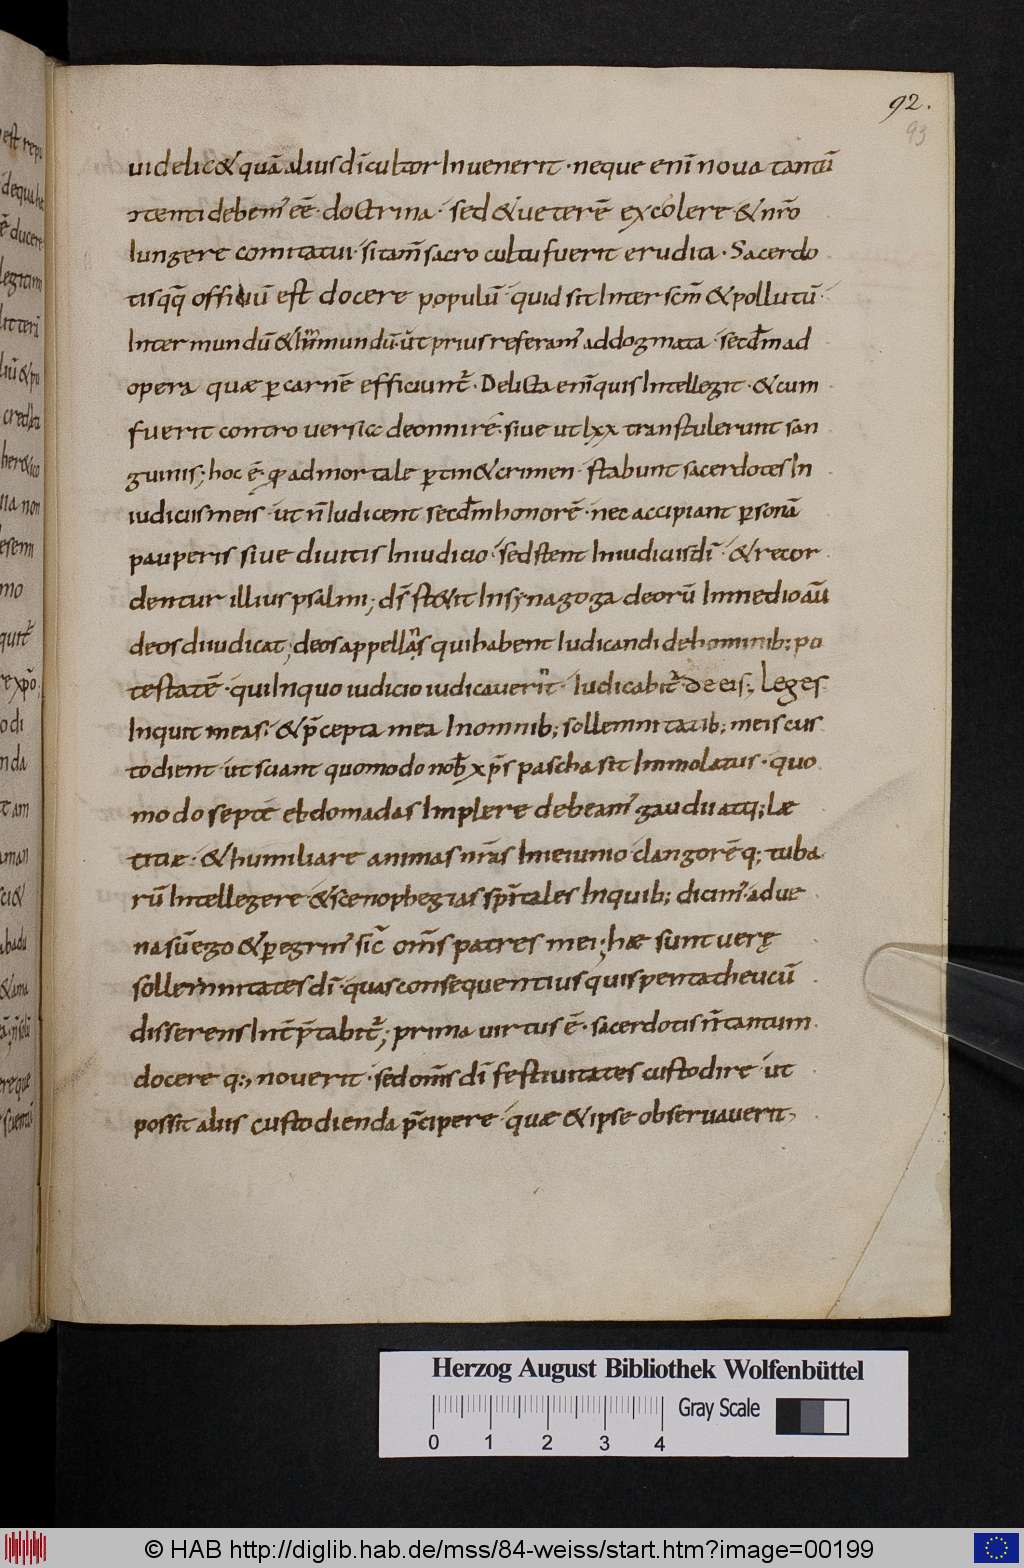 92.
93
uidelic& quā alius dī cultor Inuenerit · neque enī noua tantū
Intenti debem' eē · doctrina · sed & ueterē excolere & nr̄o
Iungere comitatui · si tam̄ sacro cultu fuerit erudita · Sacerdo
tisqq̄ officiū est docere populū · quid sit Inter scm̄ & pollutū ·
Inter mundū & Inmundū · ut prius referam' ad dogmata · secd̄m ad
opera quæ p carnē efficiunt̄ · Delicta enī quis Intellegit · & cum
fuerit controuersia de omni rē · siue ut lxx transtulerunt san
guinis ; hoc ē · qđ ad mortale ptin& crimen · stabunt sacerdotes In
iudiciis meis · ut n̄ Iudicent secd̄m honorē · nec accipiant psonā
pauperis siue diuitis In iudicio · sed stent In iudiciis dī · & recor
dentur illius psalmi ; dī st&it In synagoga deorū In medio aū
deos diiudicat ; deos appellans qui habent Iudicandi de hominib; po
testatē · qui In quo iudicio iudicauerint Iudicabit̄ de eis ; Leges
Inquit meas · & p̄cepta mea In omnib; sollemnitatib; meis cus
todient · ut sciant quomodo nob̄ xp̄s pascha sit Immolatus · quo
modo septē ebdomadas Implere debeam' gaudii atq; læ
titiæ · & humiliare animas nr̄as In ieiunio clangorē q; tuba
rū Intellegere & scenophegias sp̄itales In quib; dicim' adue
na sū ego & pegrin' sic̄ om̄s patres mei ; hæ sunt uerę
sollemnitates dī · quas consequentius quis pentatheucū
disserens Int̄p̄tabit̄ ; prima uirtus ē · sacerdotis n̄ tantum
docere q: , nouerit · sed om̄s dī festiuitates custodire ut
possit aliis custodienda p̄cipere · quæ & ipse obseruauerit ,
Herzog August Bibliothek Wolfenbüttel
Gray Scale
0 1 2 3 4
© HAB http://diglib.hab.de/mss/84-weiss/start.htm?image=00199